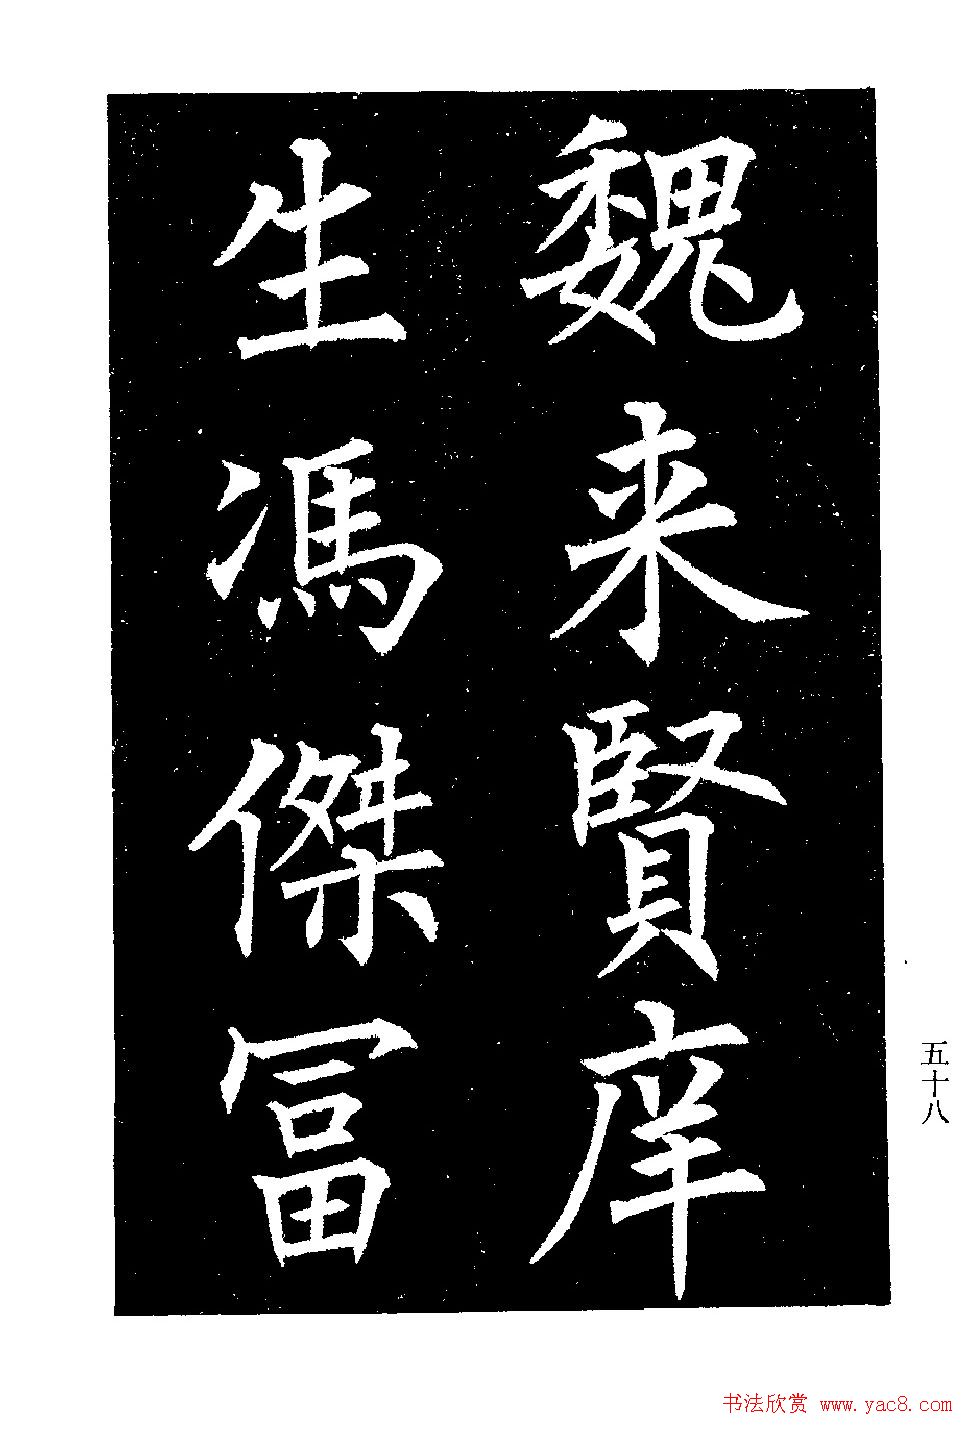 魏来賢庠
生馮傑冨
五十八
书法欣赏 www.yac8.com